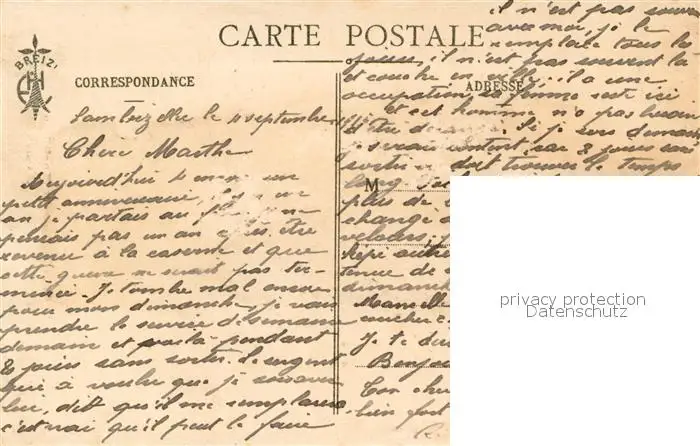 CARTE POSTALE
BREIZ
CORRESPONDANCE
ADRESSE
M
Lambézellec le 4 septembre 1915
Chère Marthe
Aujourd'hui 4 un
petit anniversaire, il y a un
an je partais au je ne
pensais pas un an après être
revenu à la caserne et que
cette guerre ne serait pas ter-
minée. Je tombe mal encore
pour mon dimanche, je vais
prendre le service de semaine
demain et voilà pendant
8 jours sans sortir. Le sergent
qui a voulu que je
lui, dit qu'il me remplacera
c'est vrai qu'il peut le faire
il n'est pas souvent
avec moi, je le
remplace tous les
jours, il n'est pas souvent là
et couche en ville, il a une
occupation, sa femme reste ici
et cet homme n'a pas besoin
d'être dérangé. Si je sors demain
je serais content, car 8 jours sans
sortir doit trouver le temps
long.
plus de
change
velours,
képi autre
tenue de
dimanche
coucher
Je te
Bonjour
Ton cher
bien fort
privacy protection
Datenschutz